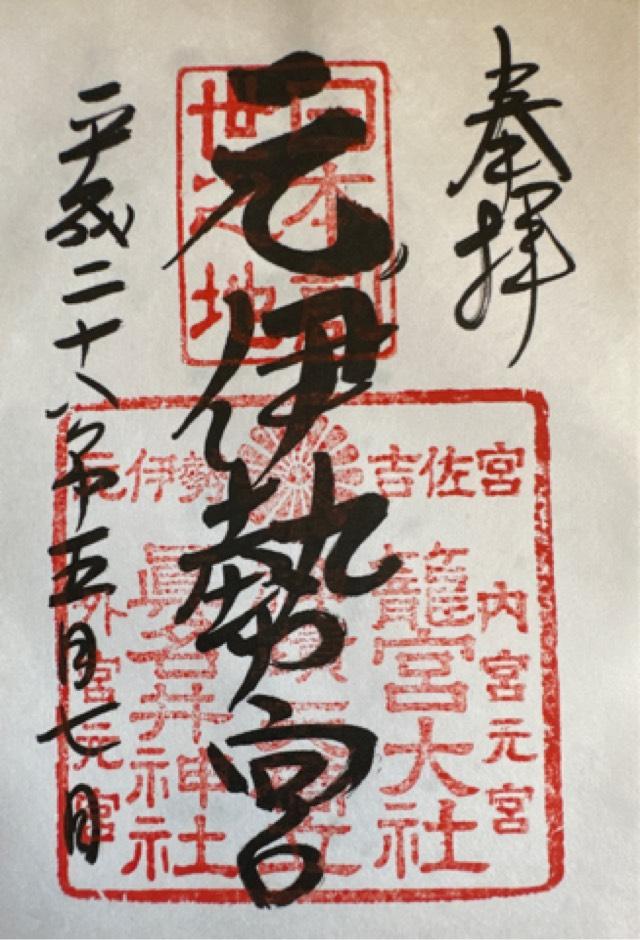 奉拝
元伊勢宮
平成二十八年五月七日
元伊勢 吉佐宮
内宮元宮
籠宮大社
眞名井神社
外宮元宮